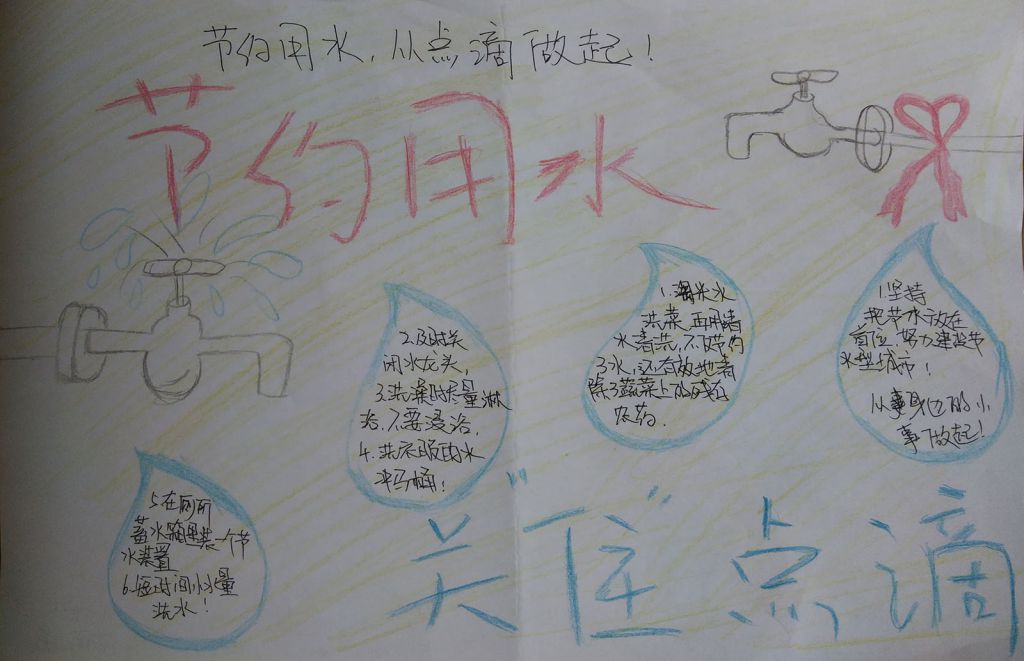 节约用水,从点滴做起!
节约用水
1.淘米水
洗菜,再用清
水清洗,不仅节约
了水,还有效地清
除了蔬菜上的残存
农药.
1.坚持
把节水放在
首位,努力建设节
水型城市!
从事身边的小
事做起!
2.及时关
闭水龙头,
3.洗澡时尽量淋
浴,不要浸浴,
4.洗衣服的水
冲马桶!
5.在厕所
蓄水箱里装一个节
水装置
6.短时间小量
洗水!
关"住"点滴